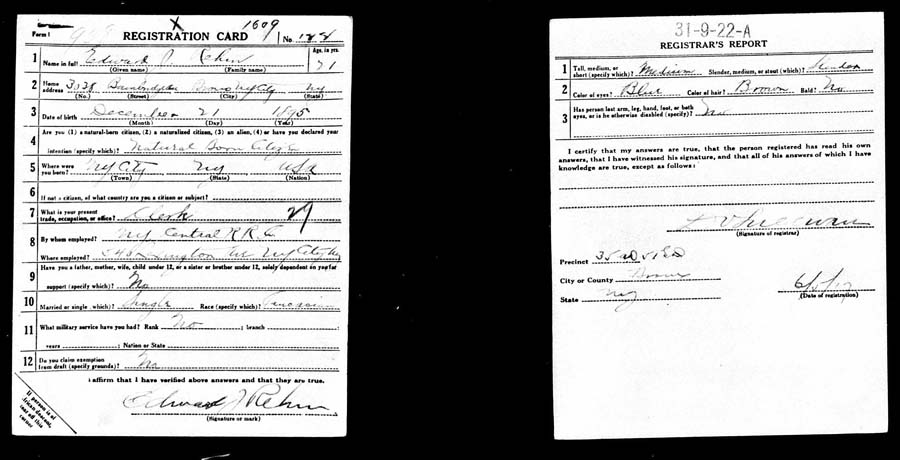 X
1609
Form 1 REGISTRATION CARD No. 128
1 Name in full Edward J. Rehm Age, in yrs. 21
(Given name) (Family name)
2 Home address 3038 Bainbridge Bronx NyCity Ny
(No.) (Street) (City) (State)
3 Date of birth December 21 1895
(Month) (Day) (Year)
Are you (1) a natural-born citizen, (2) a naturalized citizen, (3) an alien, (4) or have you declared your
4 intention (specify which)? Natural Born Citizen
5 Where were you born? Ny City Ny USA
(Town) (State) (Nation)
6 If not a citizen, of what country are you a citizen or subject?
7 What is your present trade, occupation, or office? Clerk 29
8 By whom employed? Ny Central R.R. Co
Where employed? Lexington Av Ny City Ny
9 Have you a father, mother, wife, child under 12, or a sister or brother under 12, solely dependent on you for
support (specify which)? No
10 Married or single (which)? Single Race (specify which)? Caucasian
11 What military service have you had? Rank No ; branch ;
years ; Nation or State
12 Do you claim exemption from draft (specify grounds)? No
I affirm that I have verified above answers and that they are true.
Edward J Rehm
(Signature or mark)
If person is of
African descent,
tear off this
corner
31-9-22-A
REGISTRAR'S REPORT
1 Tall, medium, or short (specify which)? Medium Slender, medium, or stout (which)? Slender
2 Color of eyes? Blue Color of hair? Brown Bald? No
3 Has person lost arm, leg, hand, foot, or both eyes, or is he otherwise disabled (specify)? No
I certify that my answers are true, that the person registered has read his own
answers, that I have witnessed his signature, and that all of his answers of which I
have knowledge are true, except as follows:
(Signature of registrar)
Precinct 35 AD
City or County Bronx
State Ny
6/5/17
(Date of registration)